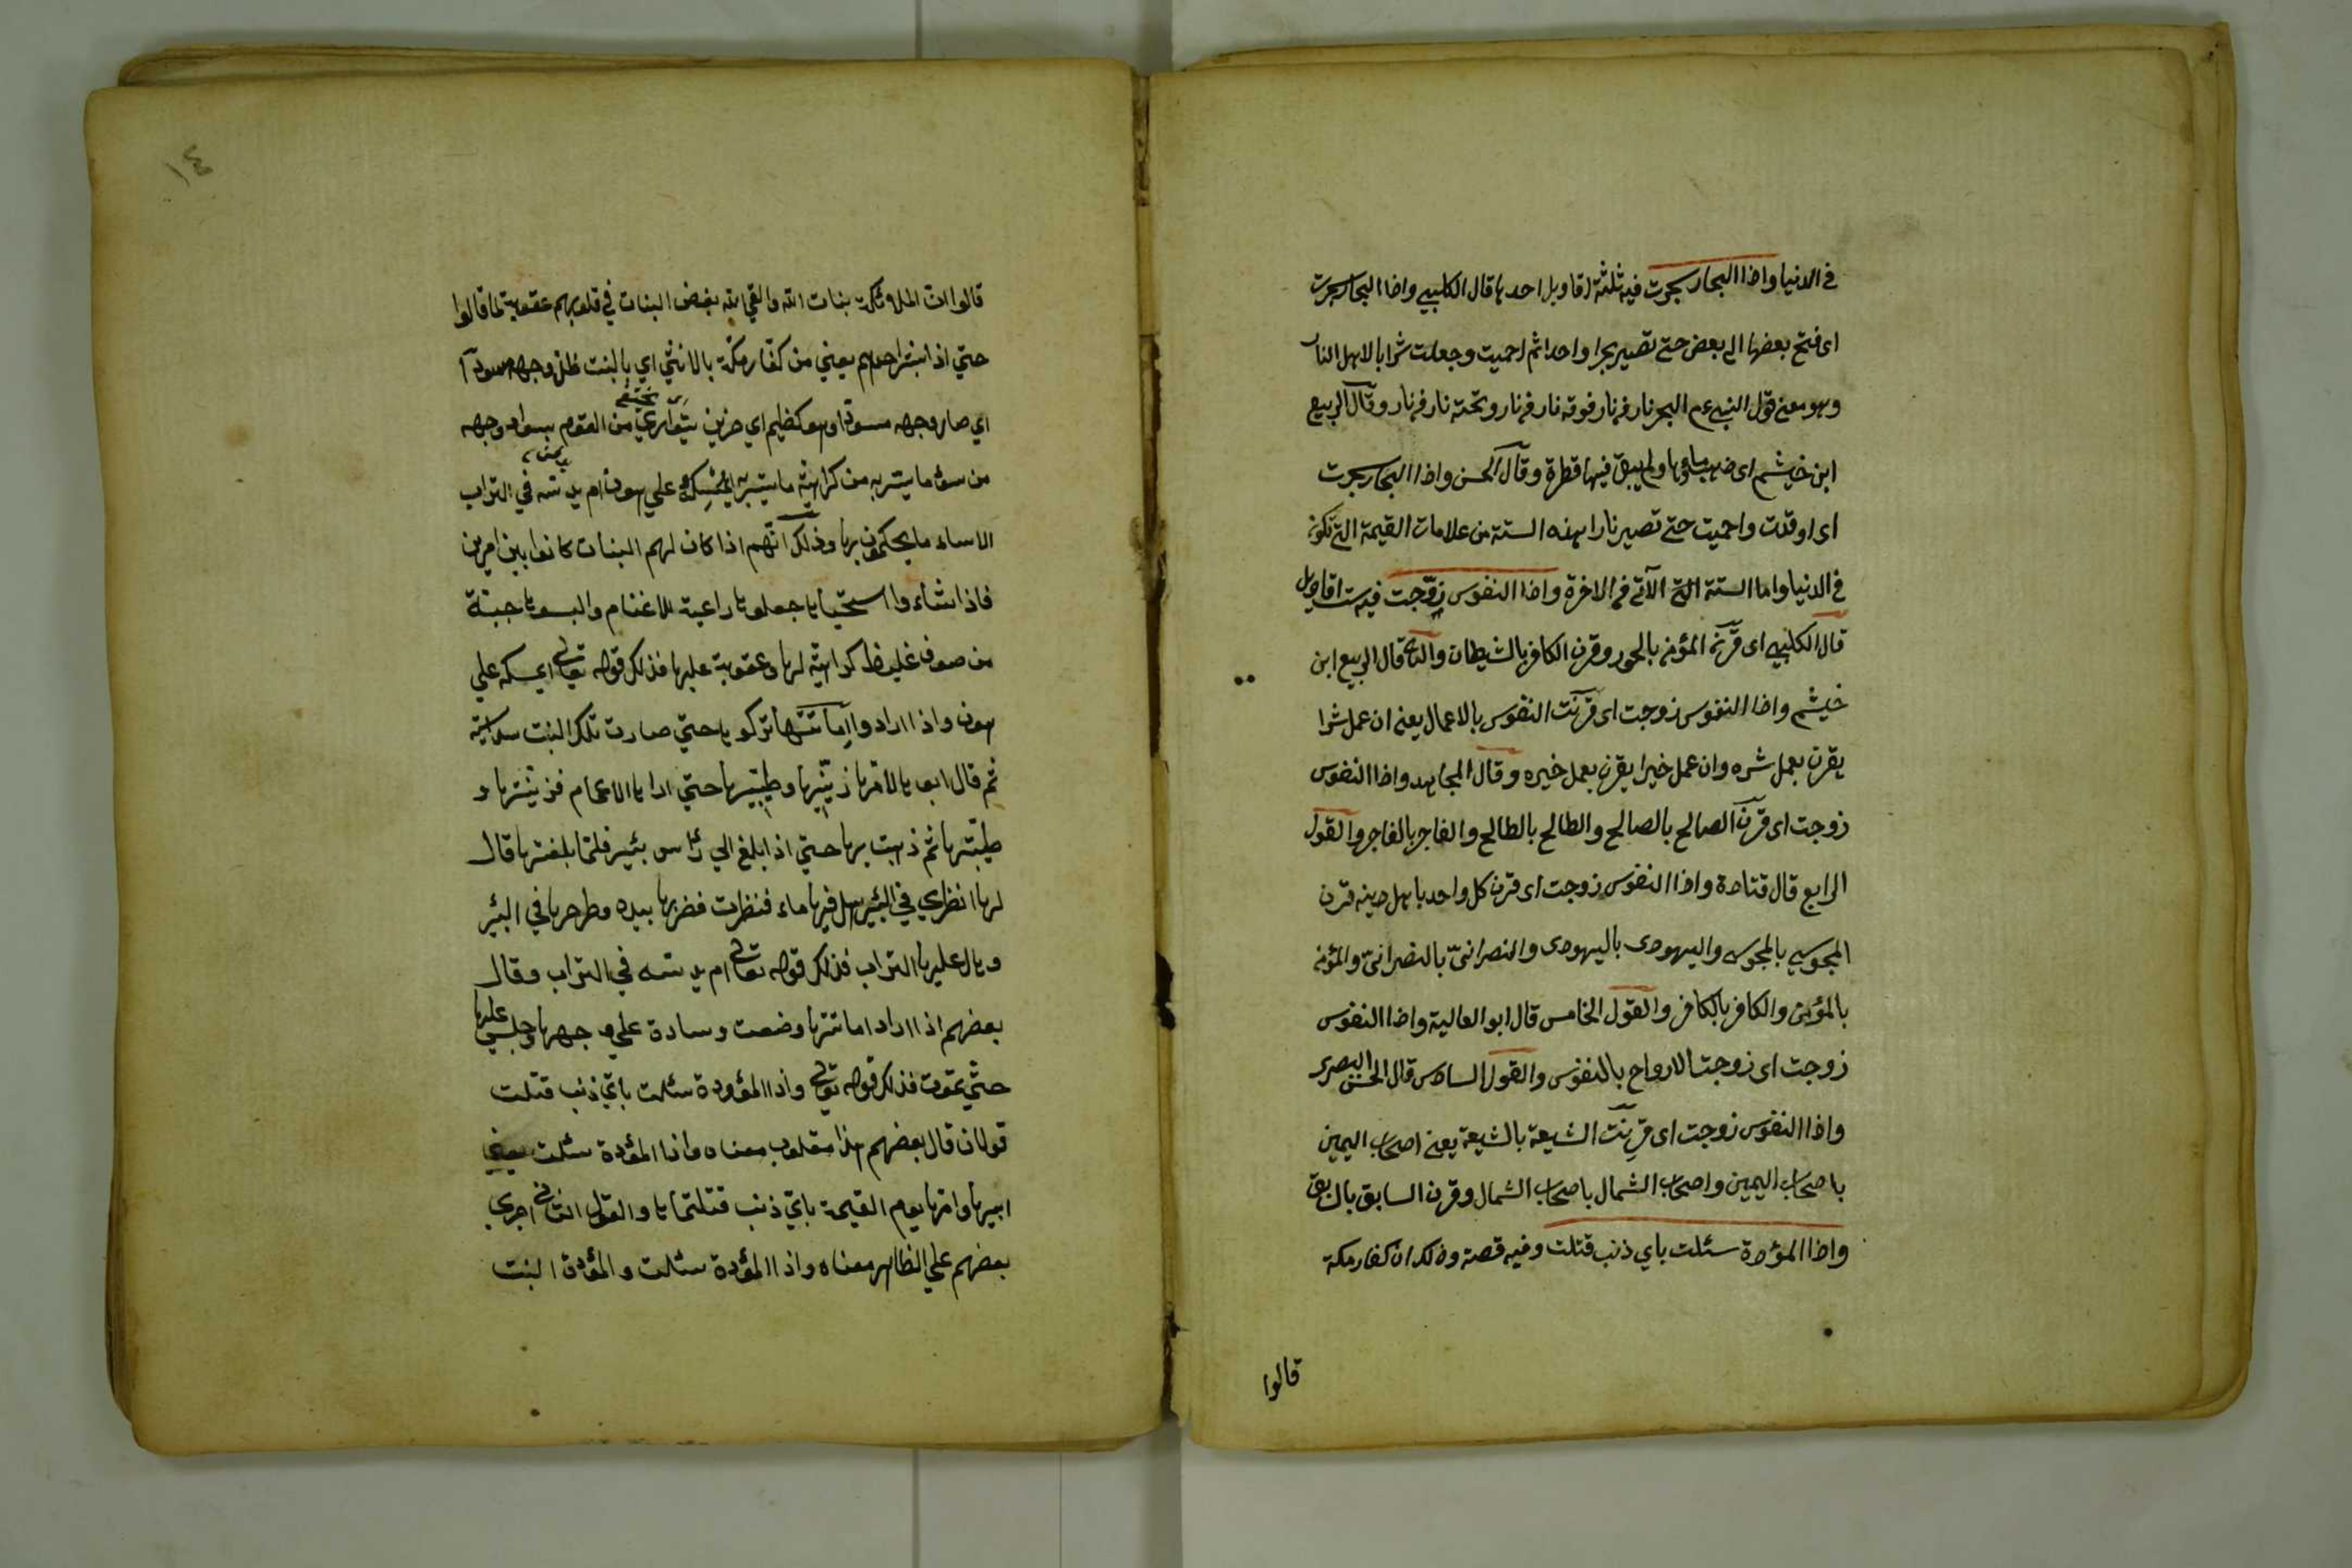 في الدنيا واذا البحار سجرت فيه ثلثة اقاويل احدها قال الكلبي واذا البحار سجرت
اى فتح بعضها الى بعض حتى تصير بحرا واحدا ثم احميت وجعلت شرابا لاهل النار
وهو معنى قول النبي عم البحر نار في نار فوقه نار في نار وتحته نار في نار وقال الربيع
ابن خيثم اى ذهب ماؤها ولم يبق فيها قطرة وقال الحسن واذا البحار سجرت
اى اوقدت واحميت حتى تصير نارا بهذه الستة من علامات القيمة التى تكون
في الدنيا واما الستة التى الآتى في الاخرة واذا النفوس زوّجت فيه ست اقاويل
قال الكلبي اى قرنت المؤمن بالحور وقرن الكافر بالشيطان والثانى قال الربيع ابن
خيثم واذا النفوس زوجت اى قرنت النفوس بالاعمال يعنى ان عمل شرا
يقرن بعمل شره وان عمل خيرا يقرن بعمل خيره وقال المجاهد واذا النفوس
زوجت اى قرن الصالح بالصالح والطالح بالطالح والفاجر بالفاجر والقول
الرابع قال قتادة واذا النفوس زوجت اى قرن كل واحد باهل دينه قرن
المجوسي بالمجوسى واليهودى باليهودى والنصرانىّ بالنصرانىّ والمؤمن
بالمؤمن والكافر بالكافر والقول الخامس قال ابو العالية واذا النفوس
زوجت اى زوجت الارواح بالنفوس والقول السادس قال الحسن البصرى
واذا النفوس زوجت اى قرنت الشيعة بالشيعة يعنى اصحاب اليمين
باصحاب اليمين واصحاب الشمال باصحاب الشمال وقرن السابق بالسابق
واذا المؤدة سئلت باي ذنب قتلت وفيه قصة وذلك ان كفار مكة
قالوا
١٤
قالوا ان الملائكة بنات الله والقي الله بغض البنات في قلوبهم عقوبة لما قالوا
حتي اذا بشر احدهم يعني من كفار مكة بالانثي اي بالبنت ظل وجهه مسودا
اي صار وجهه مسودا وهو كظيم اي حزين يتواري من القوم بسواد وجهه
من سوء ما بشر به من كراهية ما بشر به ايمسكه علي هون ام يدسه في التراب
الاساء ما يحكمون بها وذلك انهم اذا كان لهم البنات كانوا بين امرين
فاذا شاءوا استحياها جعلوها راعية للاغنام والبسوها جبة
من صوف غليظ كراهية لها وعقوبة عليها فذلك قوله تعالى ايمسكه علي
هون واذا ارادوا اماتتها تركوها حتي صارت تلك البنت سداسية
ثم قال ابوها لامها زينيها وطيبيها حتي اراها الاعمام فزينتها و
طيبتها ثم ذهبت بها حتي اذا بلغ الي رأس بئر فلما بلغتها قال
لها انظري في البئر هل فيها ماء فنظرت فضربها بيده وطرحها في البئر
وهال عليها التراب فذلك قوله تعالى ام يدسه في التراب وقال
بعضهم اذا اراد اماتتها وضعت وسادة علي وجهها وجلس عليها
حتي تموت فذلك قوله تعالى واذا الموؤدة سئلت باي ذنب قتلت
قولان قال بعضهم هذا مقلوب معناه واذا المؤدة سئلت يعني
ابيها وامها يوم القيمة باي ذنب قتلتماها والقول الثاني اجري
بعضهم علي الظاهر معناه واذا المؤدة سئلت والمؤدة البنت